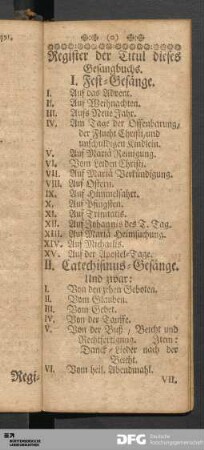 (0)
Register der Titul dieses
Gesangbuchs.
I. Fest-Gesänge.
I. Auf das Advent.
II. Auf Weihnachten.
III. Aufs Neue Jahr.
IV. Am Tage der Offenbarung,
der Flucht Christi, und
unschuldigen Kindlein.
V. Auf Mariä Reinigung.
VI. Vom Leiden Christi.
VII. Auf Mariä Verkündigung.
VIII. Auf Ostern.
IX. Auf Himmelfahrt.
X. Auf Pfingsten.
XI. Auf Trinitatis.
XII. Auf Johannis des T. Tag.
XIII. Auf Mariä Heimsuchung.
XIV. Auf Michaelis.
XV. Auf der Apostel-Tage.
II. Catechismus-Gesänge.
Und zwar:
I. Von den zehen Geboten.
II. Vom Glauben.
III. Vom Gebet.
IV. Von der Tauffe.
V. Von der Buß, Beicht und
Rechtfertigung. Item:
Danck-Lieder nach der
Beicht.
VI. Vom heil. Abendmahl.
VII.
Regi-
DFG Deutsche
Forschungsgemeinschaft